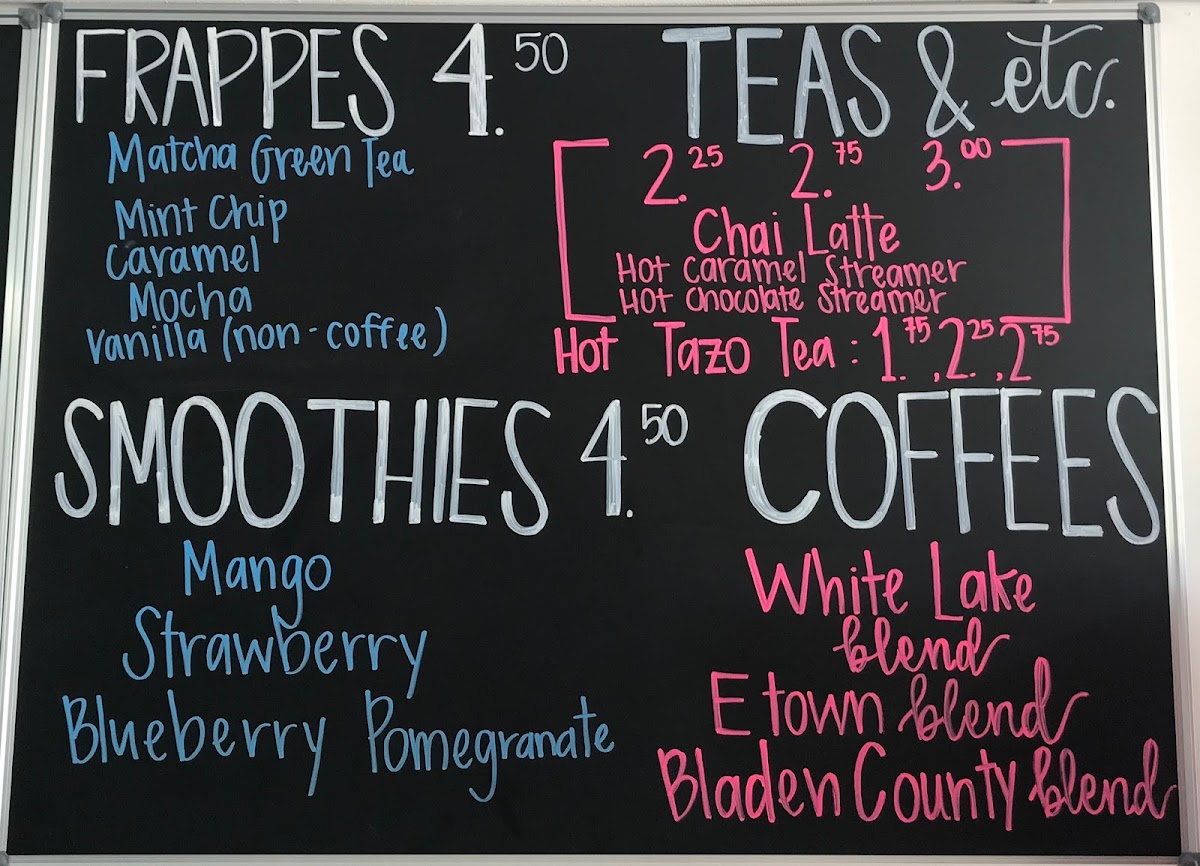 FRAPPES 4.50
Matcha Green Tea
Mint Chip
Caramel
Mocha
Vanilla (non-coffee)
TEAS & etc.
2.25 2.75 3.00
Chai Latte
Hot Caramel Streamer
Hot Chocolate Streamer
Hot Tazo Tea: 1.75, 2.25, 2.75
SMOOTHIES 4.50
Mango
Strawberry
Blueberry Pomegranate
COFFEES
White Lake
blend
Etown blend
Bladen County blend